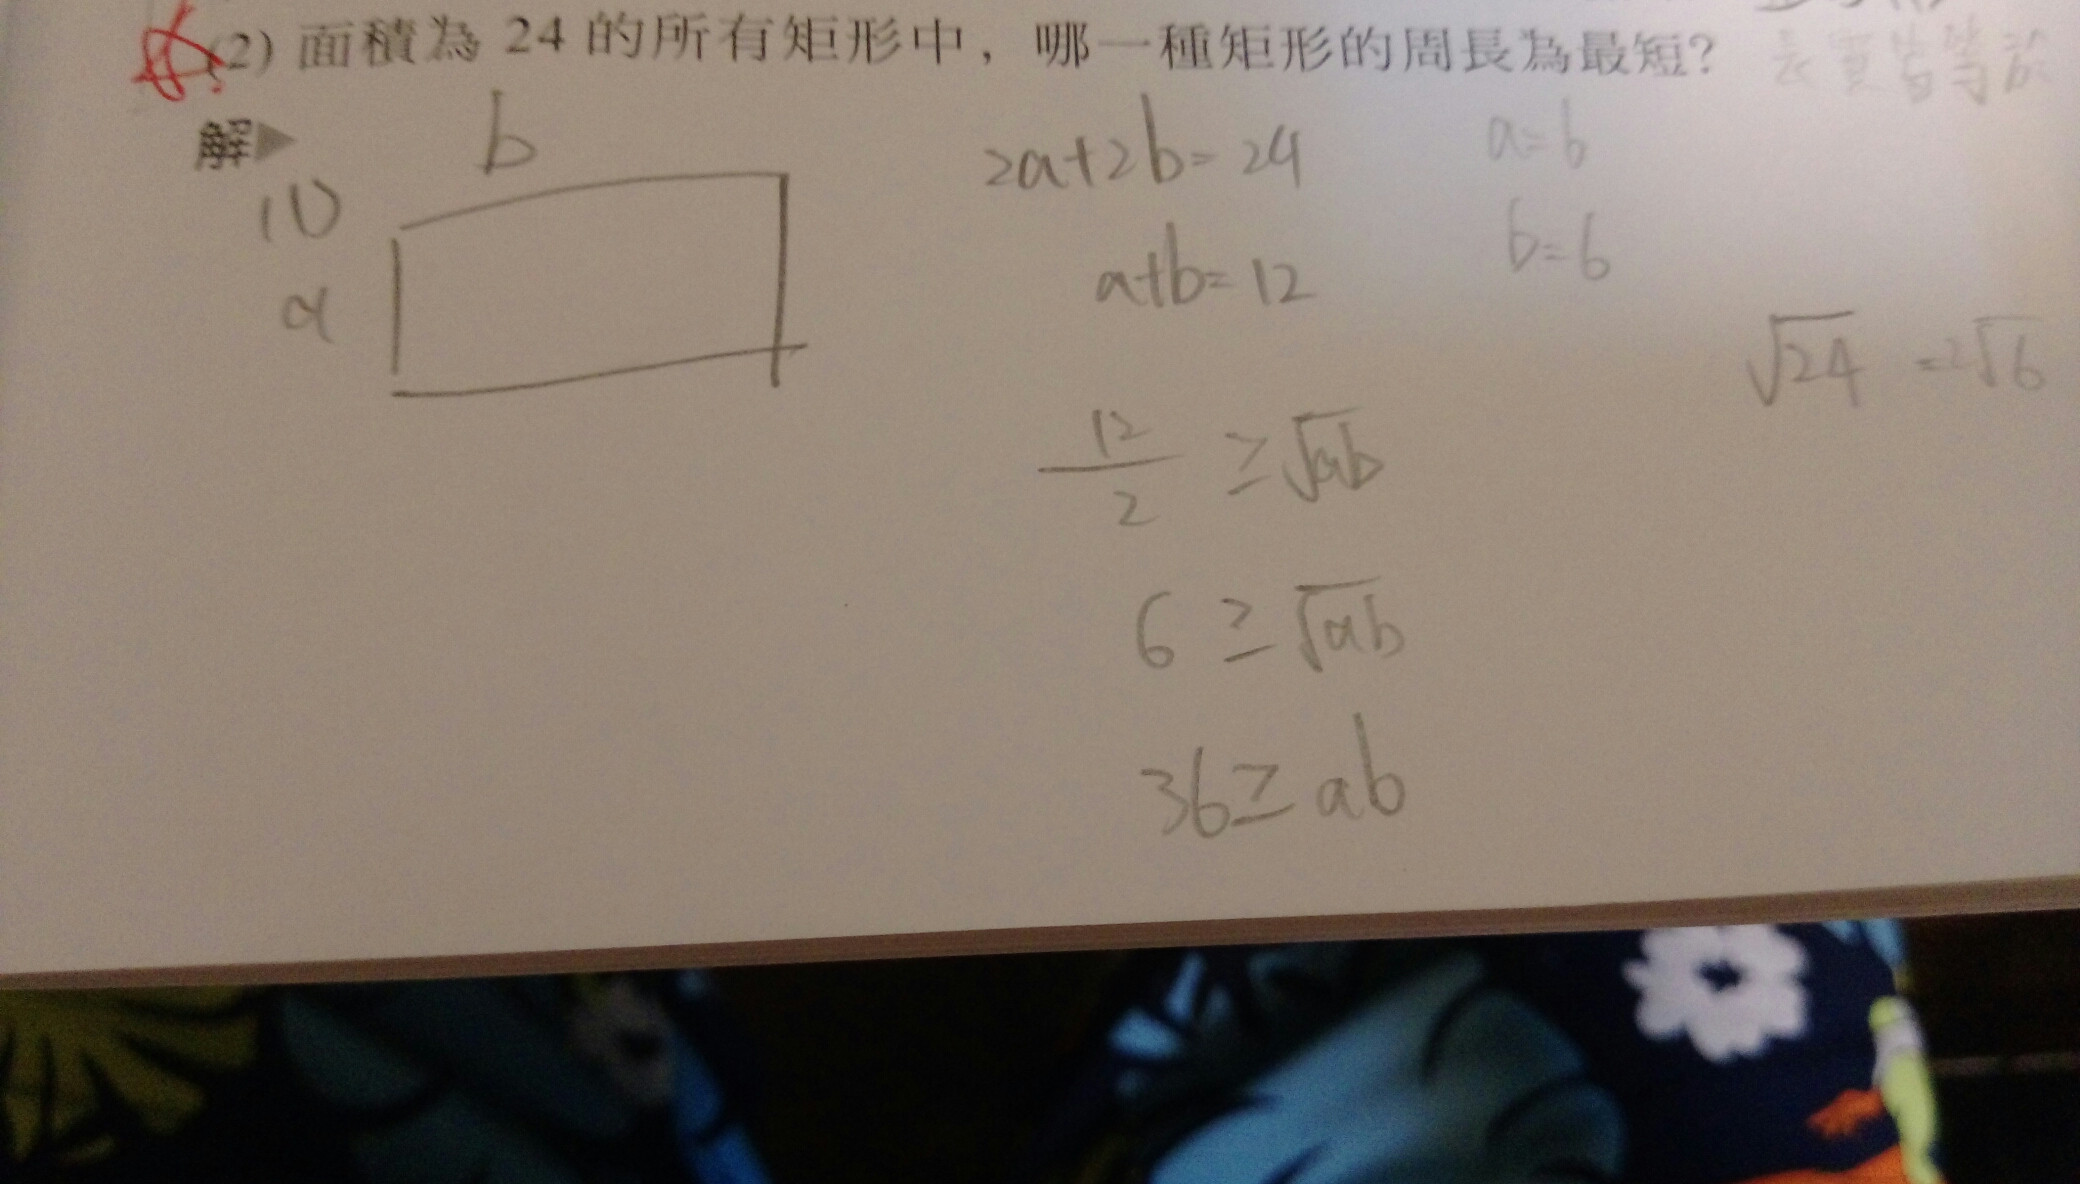 (2) 面積為 24 的所有矩形中，哪一種矩形的周長為最短？
長寬皆等於
解▶
(1)
b
a
2a+2b=24
a+b=12
12/2 ≥ √ab
6 ≥ √ab
36 ≥ ab
a=b
b=6
√24 =2√6